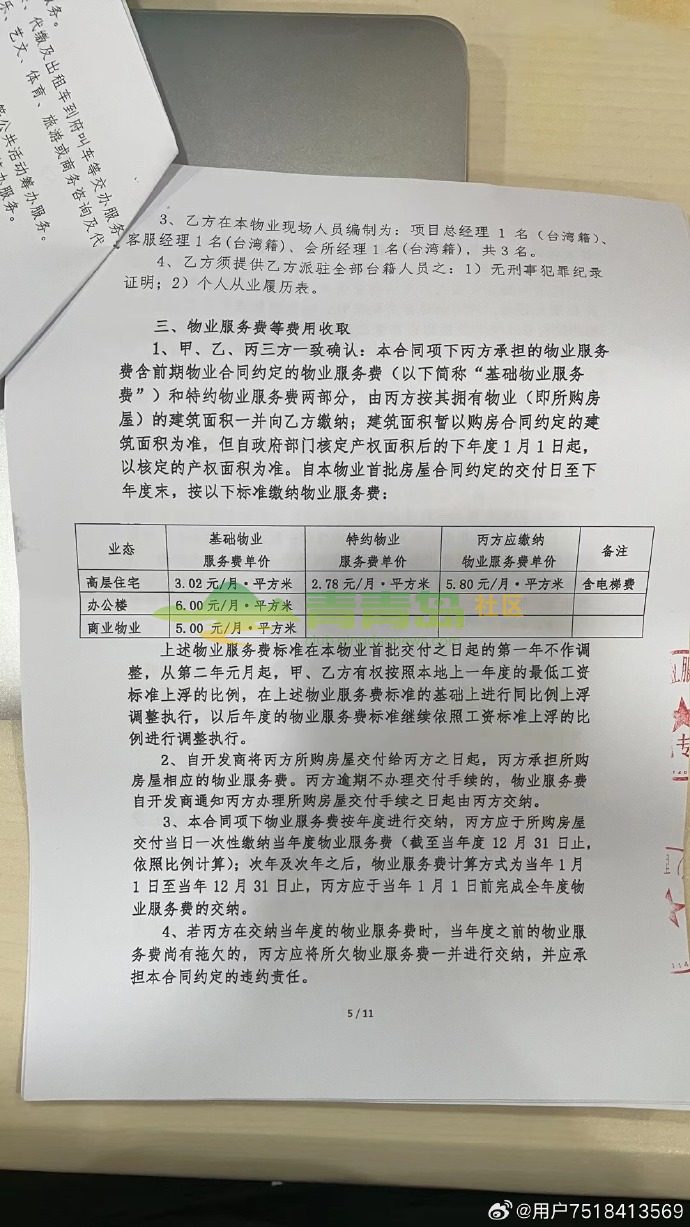 服务。
、代缴及出租车到府叫车等交办服务
乐、艺文、体育、旅游或商务咨询及代
等公共活动筹办服务。
办服务。
3、乙方在本物业现场人员编制为：项目总经理 1 名（台湾籍）、
客服经理 1 名(台湾籍)、会所经理 1 名(台湾籍)，共 3 名。
4、乙方须提供乙方派驻全部台籍人员之：1）无刑事犯罪纪录
证明；2）个人从业履历表。
三、物业服务费等费用收取
1、甲、乙、丙三方一致确认：本合同项下丙方承担的物业服务
费含前期物业合同约定的物业服务费（以下简称“基础物业服务
费”）和特约物业服务费两部分，由丙方按其拥有物业（即所购房
屋）的建筑面积一并向乙方缴纳；建筑面积暂以购房合同约定的建
筑面积为准，但自政府部门核定产权面积后的下年度 1 月 1 日起，
以核定的产权面积为准。自本物业首批房屋合同约定的交付日至下
年度末，按以下标准缴纳物业服务费：
业态 基础物业服务费单价 特约物业服务费单价 丙方应缴纳物业服务费单价 备注
高层住宅 3.02 元/月·平方米 2.78 元/月·平方米 5.80 元/月·平方米 含电梯费
办公楼 6.00 元/月·平方米
商业物业 5.00 元/月·平方米
青青岛 社区
上述物业服务费标准在本物业首批交付之日起的第一年不作调
整，从第二年元月起，甲、乙方有权按照本地上一年度的最低工资
标准上浮的比例，在上述物业服务费标准的基础上进行同比例上浮
调整执行，以后年度的物业服务费标准继续依照工资标准上浮的比
例进行调整执行。
2、自开发商将丙方所购房屋交付给丙方之日起，丙方承担所购
房屋相应的物业服务费。丙方逾期不办理交付手续的，物业服务费
自开发商通知丙方办理所购房屋交付手续之日起由丙方交纳。
3、本合同项下物业服务费按年度进行交纳，丙方应于所购房屋
交付当日一次性缴纳当年度物业服务费（截至当年度 12 月 31 日止，
依照比例计算）；次年及次年之后，物业服务费计算方式为当年 1 月
1 日至当年 12 月 31 日止，丙方应于当年 1 月 1 日前完成全年度物
业服务费的交纳。
4、若丙方在交纳当年度的物业服务费时，当年度之前的物业服
务费尚有拖欠的，丙方应将所欠物业服务费一并进行交纳，并应承
担本合同约定的违约责任。
5 / 11
@用户7518413569